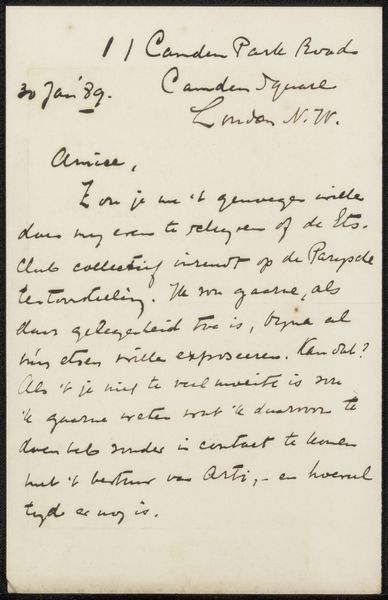 11 Camden Park Road
30 Jan '89. Camden Square
London N.W.
Amice,
Zou je me 't genoegen willen
doen my even te schryven of de Ets-
Club collectief inzendt op de Parysche
tentoonstelling. Ik zou gaarne, als
daar gelegenheid toe is, byna al
myn etsen willen exposeeren. Kan dat?
Als 't je niet te veel moeite is zou
'k gaarne weten wat 'k daarvoor te
doen heb zonder in contact te komen
met 't bestuur van Arti, - en hoeveel
tyd er nog is.